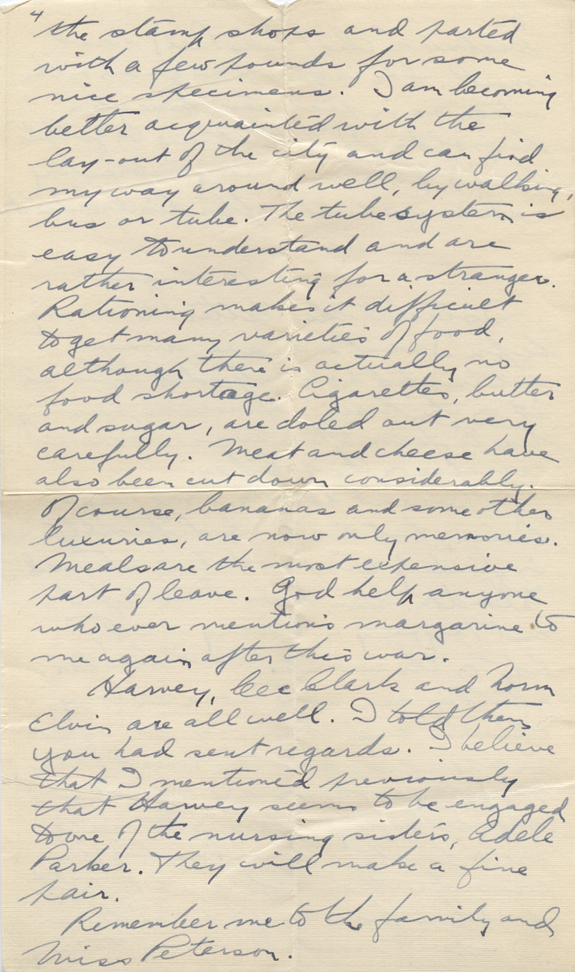 4
the stamp shops and parted
with a few pounds for some
nice specimens. I am becoming
better acquainted with the
lay-out of the city and can find
my way around well, by walking,
bus or tube. The tube system is
easy to understand and are
rather interesting for a stranger.
Rationing makes it difficult
to get many varieties of food,
although there is actually no
food shortage. Cigarettes, butter
and sugar, are doled out very
carefully. Meat and cheese have
also been cut down considerably.
Of course, bananas and some other
luxuries, are now only memories.
Meals are the most expensive
part of leave. God help anyone
who ever mentions margarine to
me again after this war.
Harvey, Cec Clark and Norm
Elvin are all well. I told them
you had sent regards. I believe
that I mentioned previously
that Harvey seems to be engaged
to one of the nursing sisters, Adele
Parker. They will make a fine
pair.
Remember me to the family and
Miss Peterson.